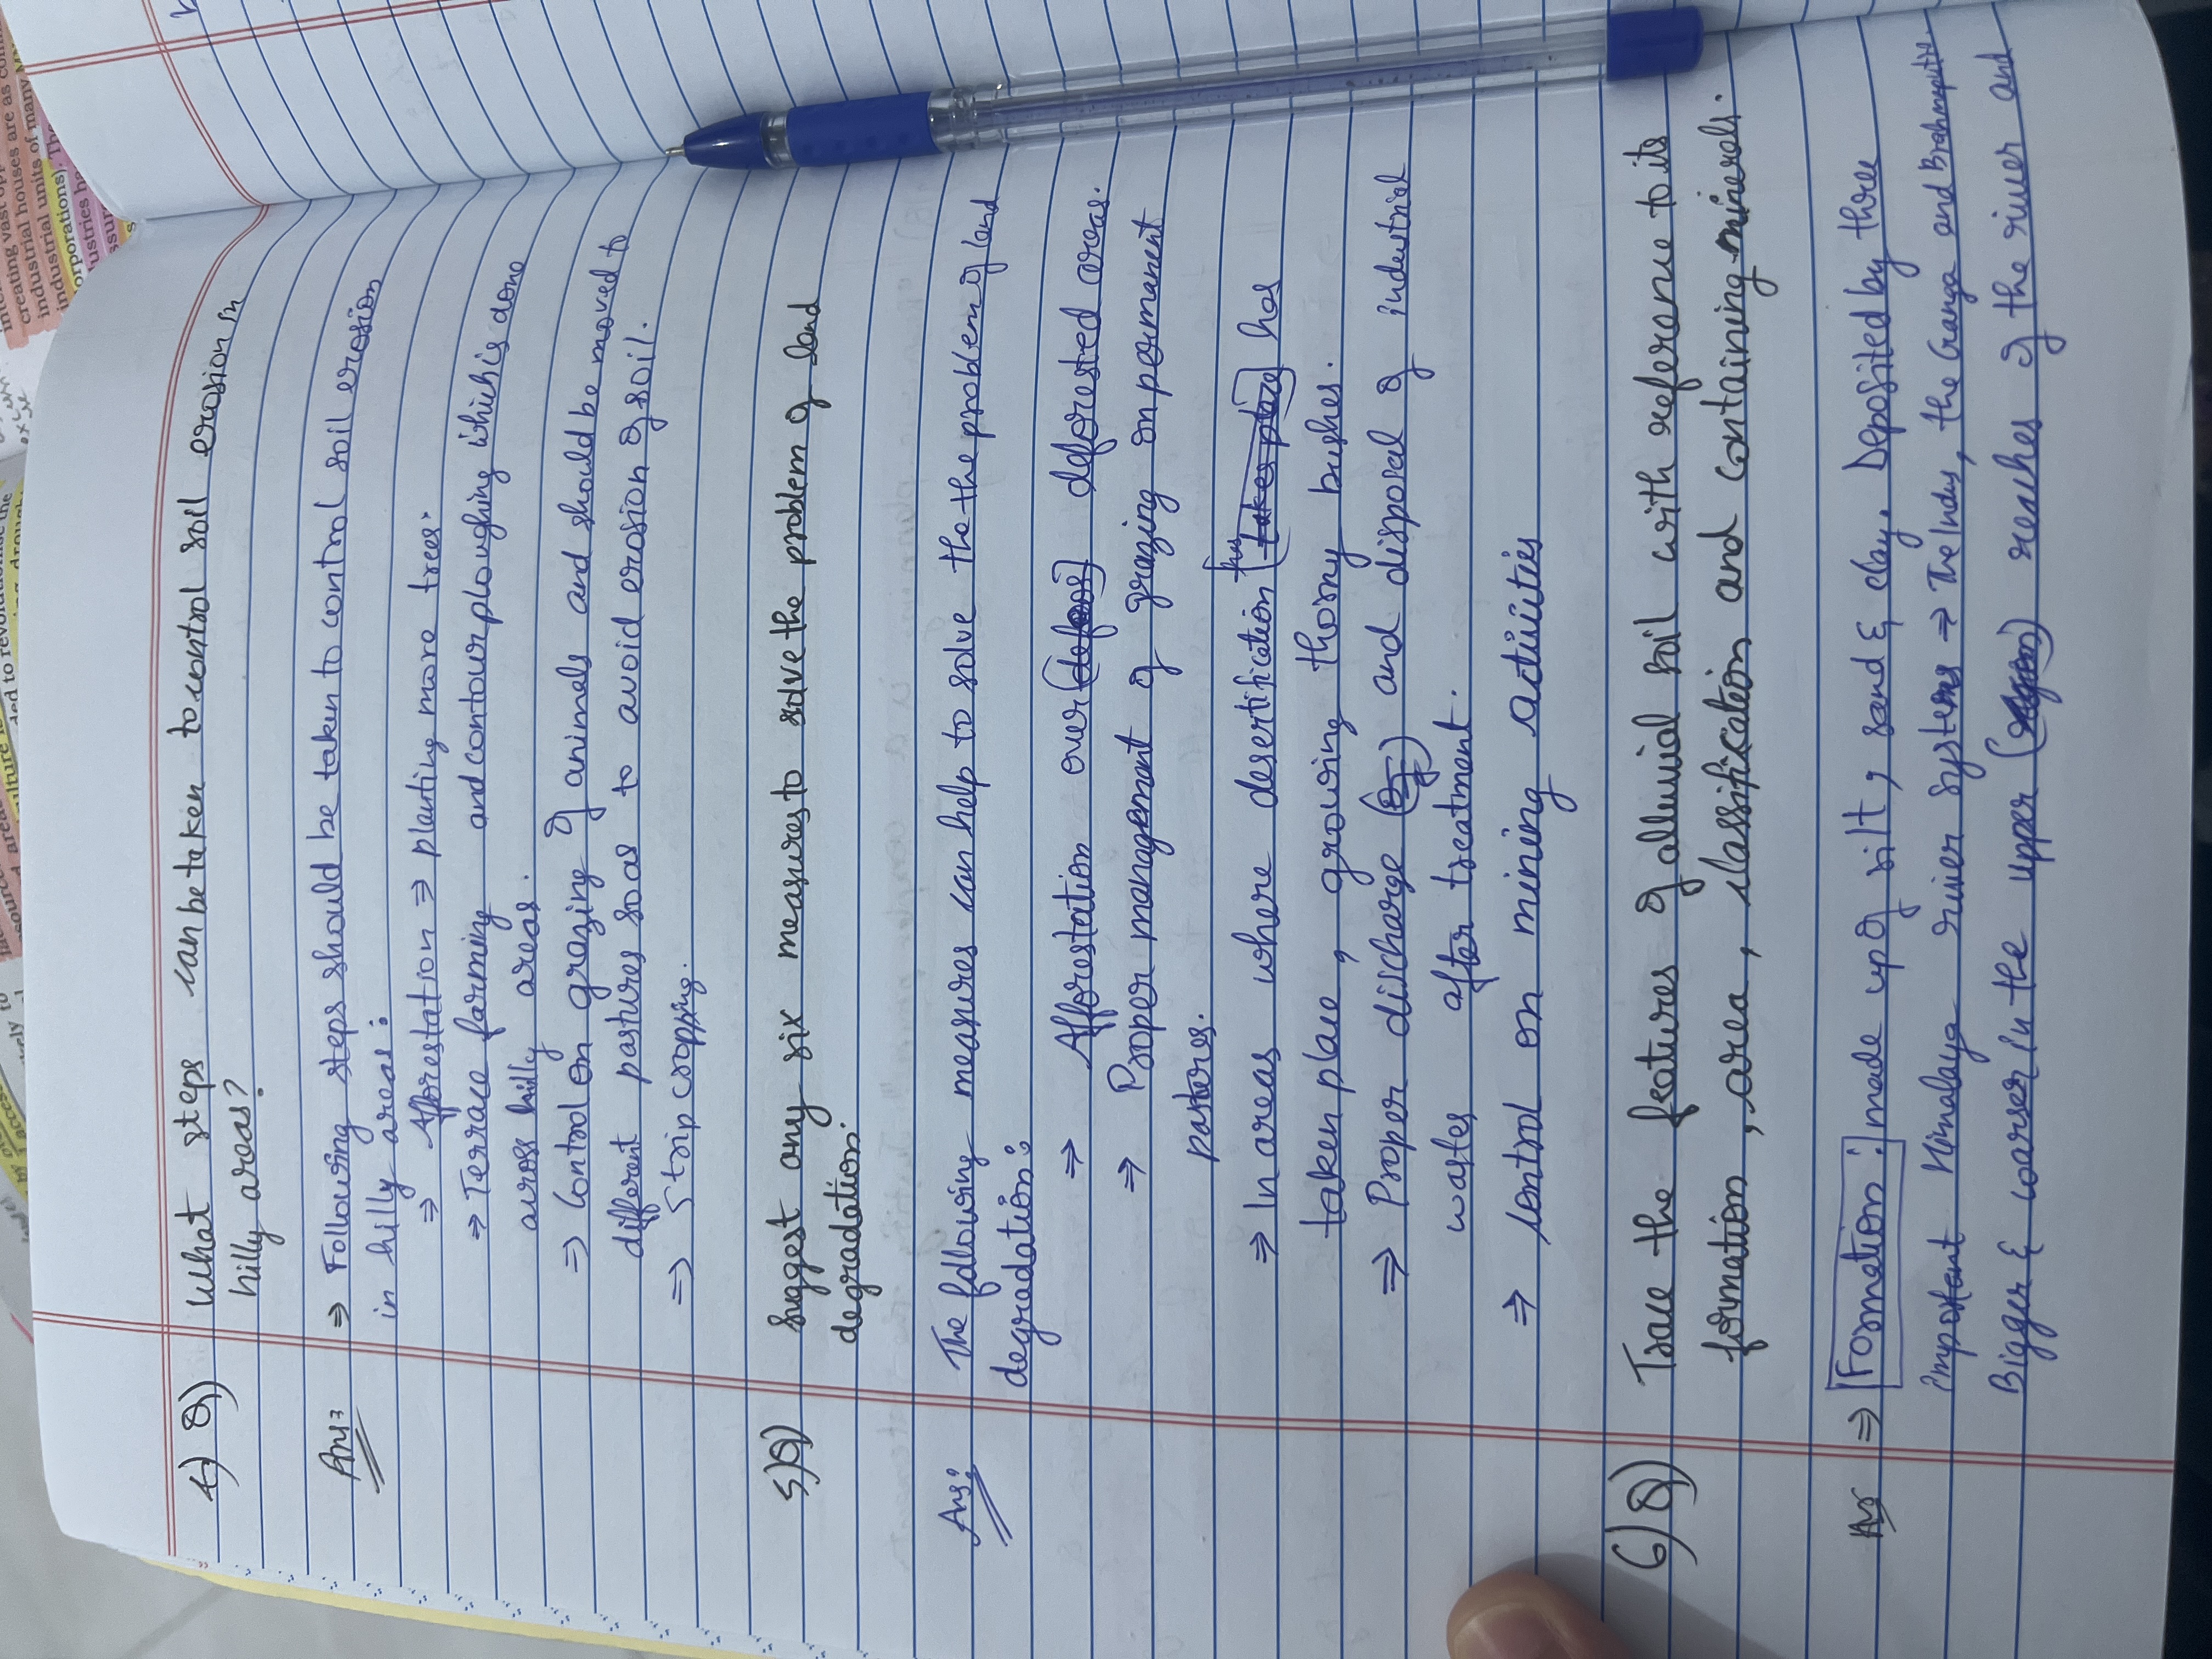 4) Q) What steps can be taken to control soil erosion in
hilly areas?
Ans: ⇒ Following steps should be taken to control soil erosion
in hilly areas:
⇒ Afforestation ⇒ planting more trees.
⇒ Terrace farming and contour ploughing which is done
across hilly areas.
⇒ Control on grazing of animals and should be moved to
different pastures so as to avoid erosion of soil.
⇒ Strip cropping.
5) Q) Suggest any six measures to solve the problem of land
degradation.
Ans: The following measures can help to solve the the problem of land
degradation:
⇒ Afforestation over deforested areas.
⇒ Proper management of grazing on permanent
pastures.
⇒ In areas where desertification has takes place has
taken place, growing thorny bushes.
⇒ Proper discharge and disposal of industrial
wastes after treatment.
⇒ control on mining activities
6) Q) Trace the features of alluvial soil with reference to its
formation, area, classification and containing minerals.
Ans ⇒ Formation: made up of silt, sand & clay. Deposited by three
important Himalaya river systems ⇒ The Indus, the Ganga and Brahmputra.
Bigger & coarser in the upper reaches of the river and
creating vast opp
industrial houses are as com
industrial units of many
orporations). The
ustries